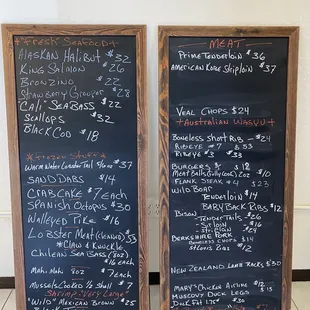 *Fresh Seafood*
Alaskan Halibut $32
King Salmon $26
Bronzino $22
Strawberry Grouper $28
"Cali" Sea Bass $22
Scallops $32
Black Cod $18
*Frozen Stuff*
Warm Water Lobster Tail $37
Sand Dabs $14
Crab Cake $7 Each
Spanish Octopus $30
Walleyed Pike $16
Lobster Meat (cleaned) $53
*Claw & Knuckle
Chilean Sea Bass
$16 Each
Mahi Mahi 8oz $7 Each
Mussels Cooked ½ Shell $7
Shrimp: Very Large
"Wild" Mexican Brown $25
Meat
Prime Tenderloin $36
American Kobe Striploin $37
Veal Chops $24
*Australian Wagyu*
Boneless Short Rib - $24
Ribeye #7 $53
Ribeye #3 $33
Burgers $
Meat Balls (Fully Cook) 2oz $10
Flank Steak #4 $23
Wild Boar
Tenderloin $14
Baby Back Ribs $12
Bison
- Tender Tails $26
- Sirloin $16
- Striploin
Berkshire Pork
Boneless Chops $14
St. Louis Ribs $12
New Zealand Lamb Racks $30
Mary's Chicken Airline $12
Muscovy Duck Legs $
Duck Fat 1.75# $30